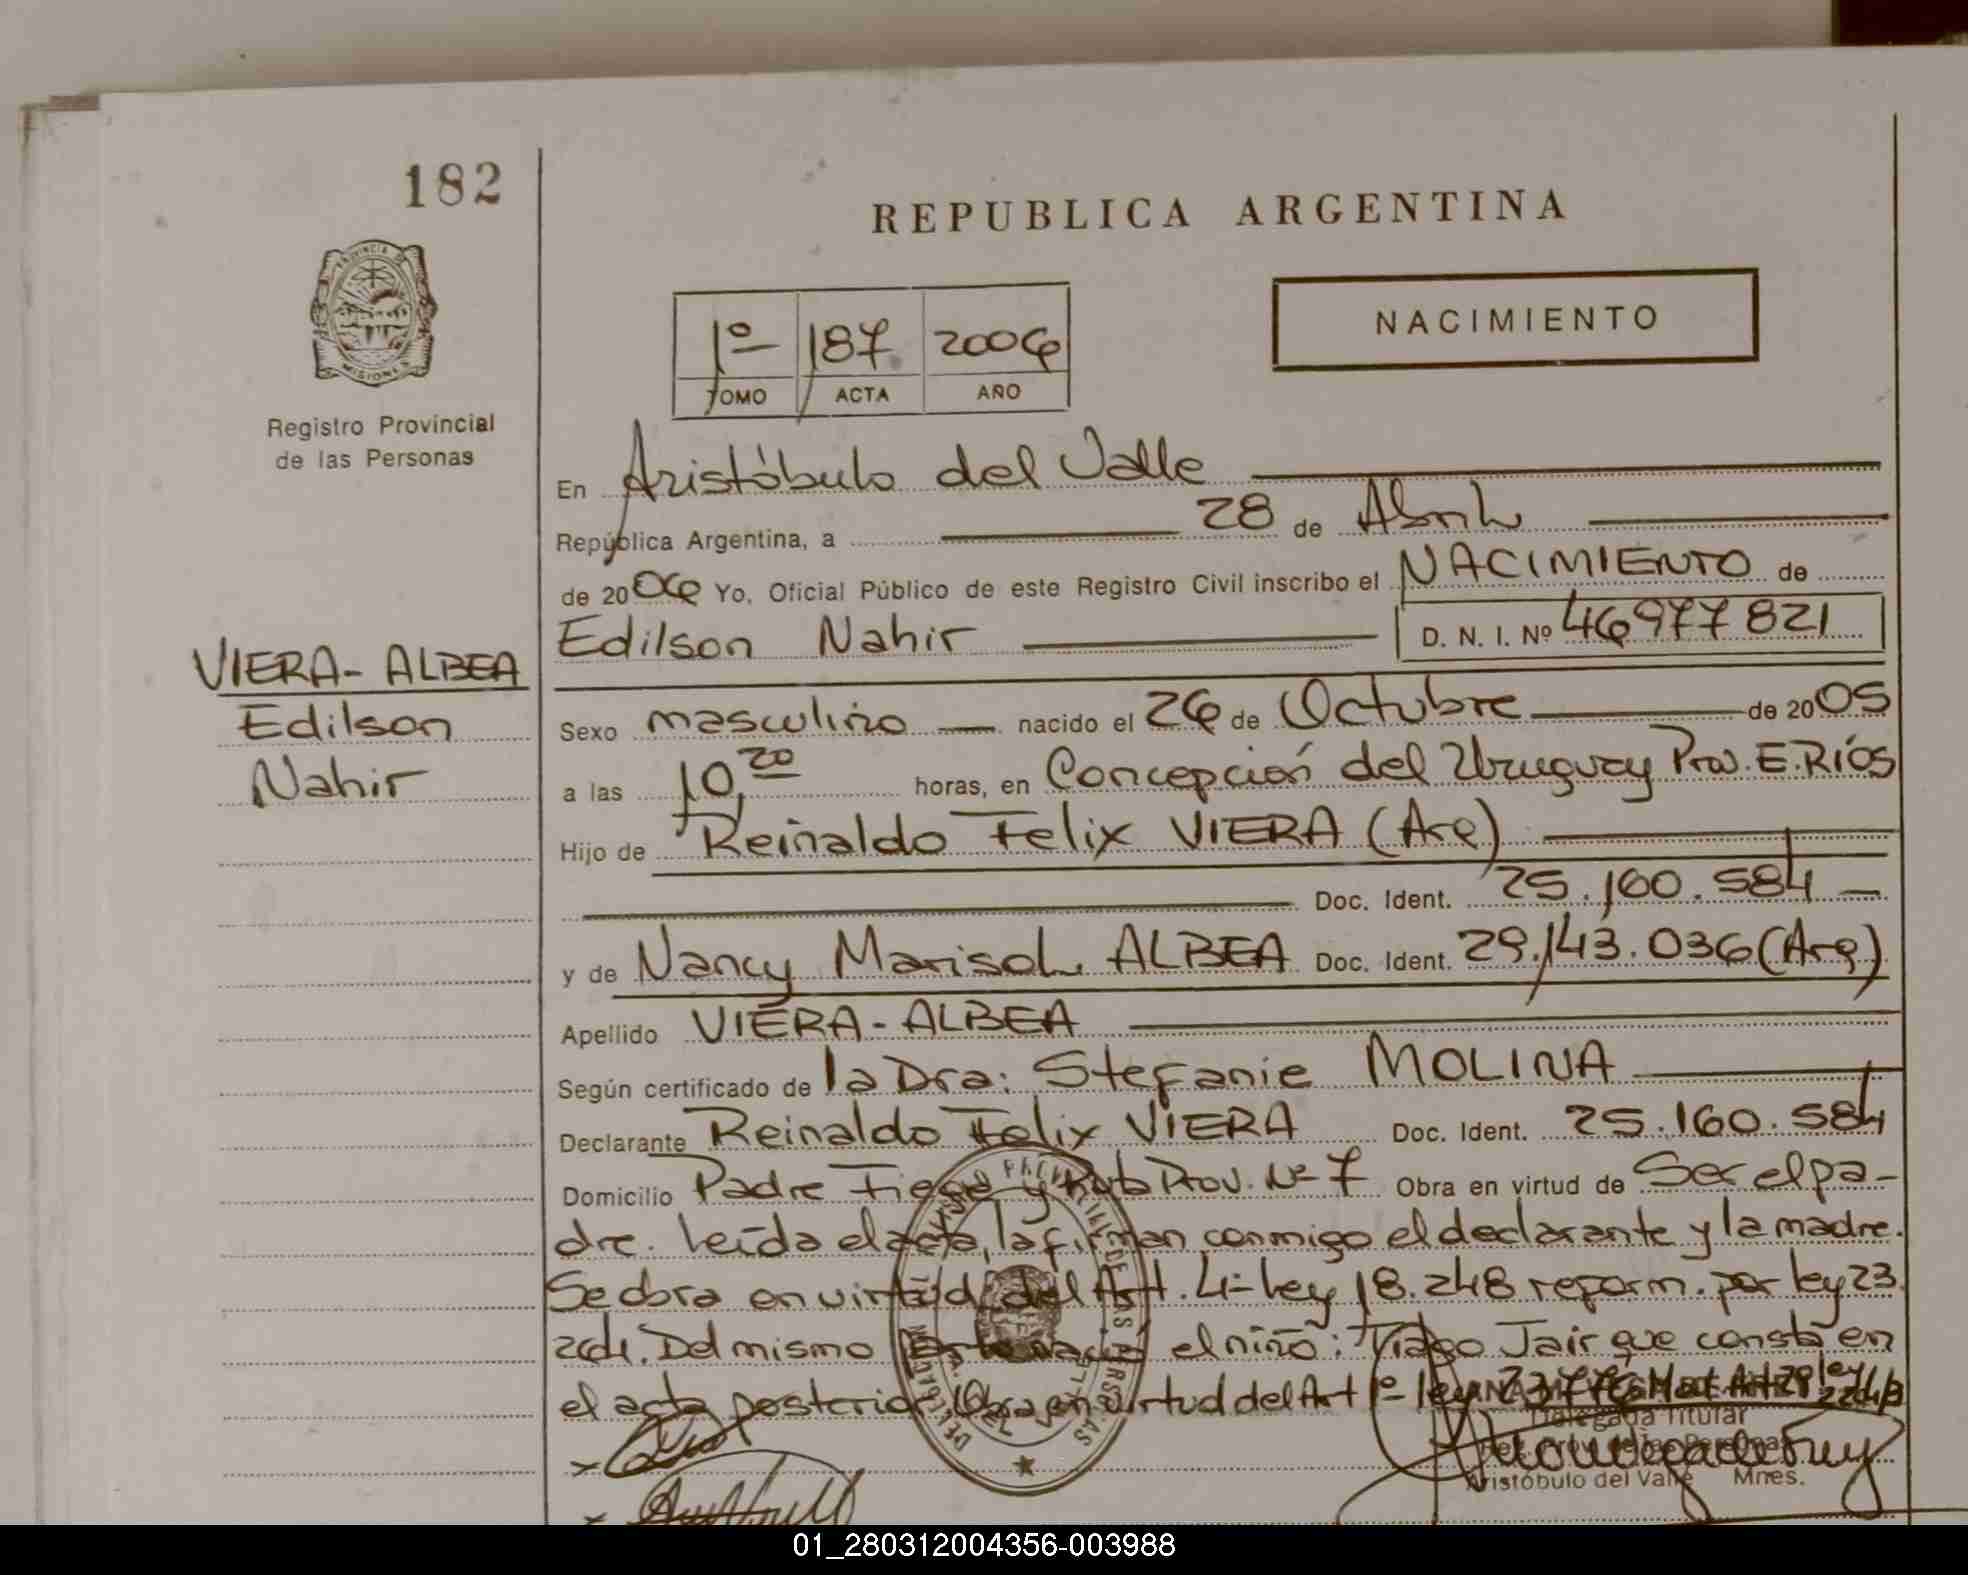 182
REPUBLICA ARGENTINA
PROVINCIA DE
MISIONES
Registro Provincial
de las Personas
1º 187 2006
TOMO ACTA AÑO
NACIMIENTO
En Aristóbulo del Valle
República Argentina, a 28 de Abril
de 2006 Yo, Oficial Público de este Registro Civil inscribo el NACIMIENTO de
Edilson Nahir D. N. I. Nº 46977821
VIERA-ALBEA
Edilson
Nahir
Sexo masculino nacido el 26 de Octubre de 2005
a las 10,20 horas, en Concepción del Uruguay Prov. E.Ríos
Hijo de Reinaldo Felix VIERA (Arg)
Doc. Ident. 25.160.584
y de Nancy Marisol ALBEA Doc. Ident. 29.143.036 (Arg)
Apellido VIERA-ALBEA
Según certificado de la Dra: Stefanie MOLINA
Declarante Reinaldo Felix VIERA Doc. Ident. 25.160.584
Domicilio Padre y Ruta Prov. Nº 7 Obra en virtud de Ser el pa-
dre. Leída el acta, la firman conmigo el declarante y la madre.
Se obra en virtud del Art. 4º Ley 18.248 reform. por ley 23.
264. Del mismo parto nació el niño: Tiago Jair que consta en
el acta posterior. Obra en virtud del Art 1º ley
Delegada Titular
Reg. Prov. de las Personas
Aristóbulo del Valle Mnes.
01_280312004356-003988